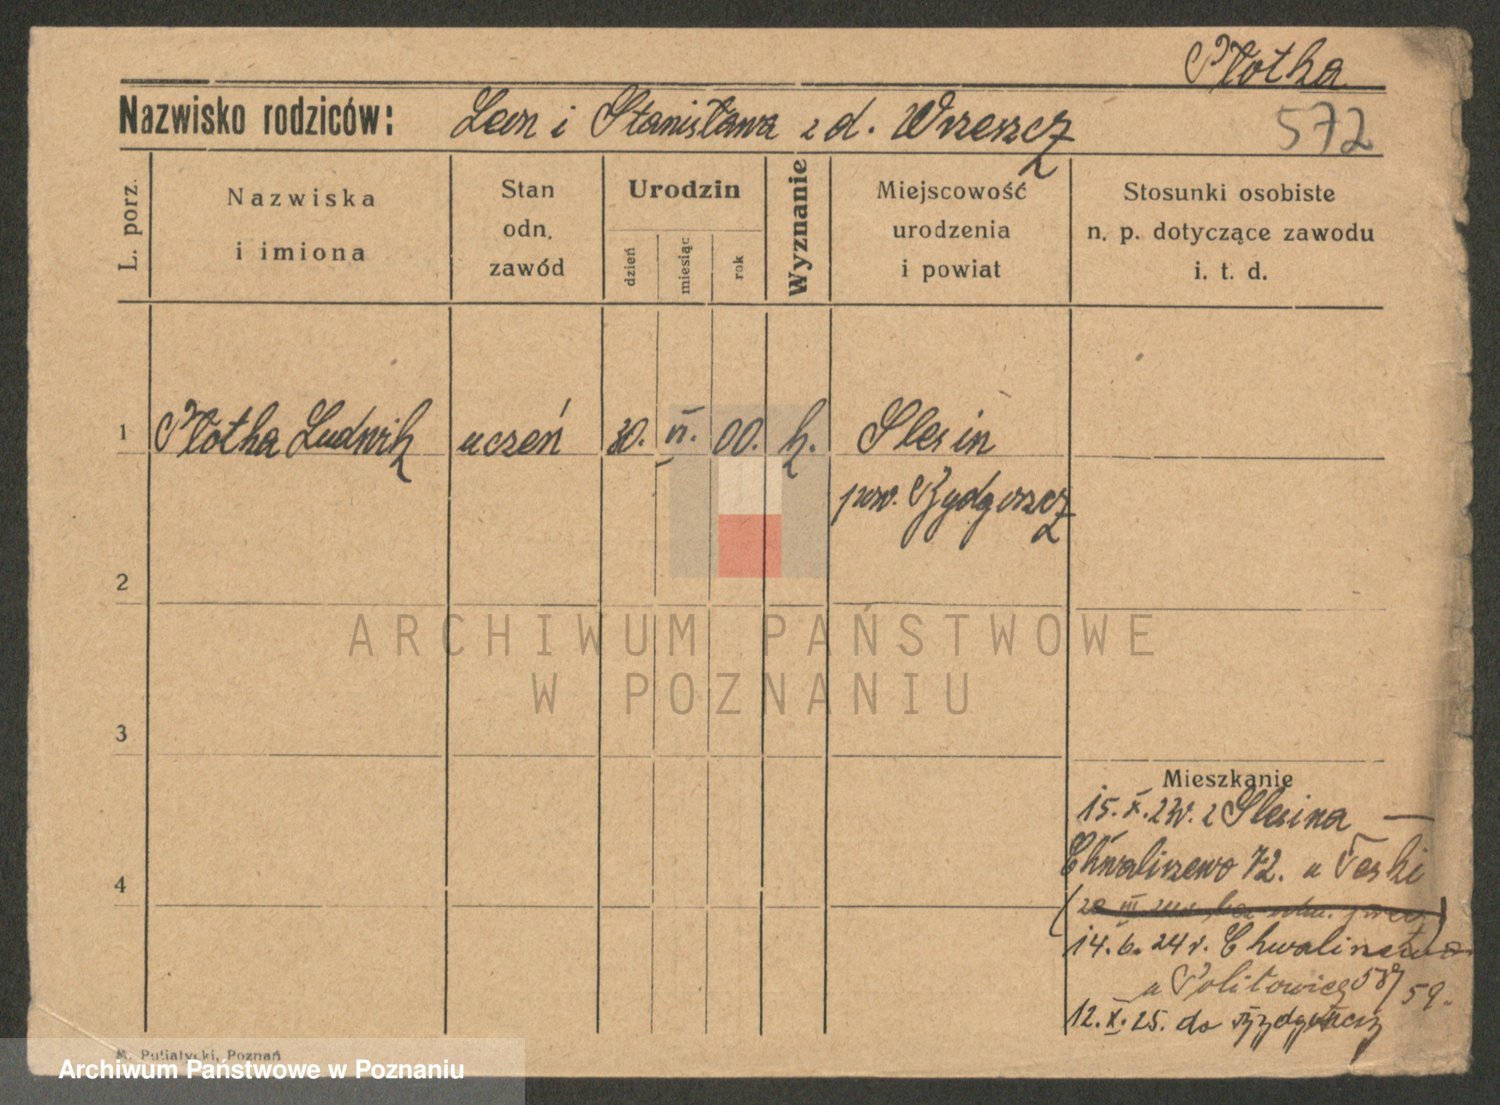 Płotka
Nazwisko rodziców: Leon i Stanisława z d. Wrzeszcz
572
L. porz.
Nazwiska
i imiona
Stan
odn.
zawód
Urodzin
dzień
miesiąc
rok
Wyznanie
Miejscowość
urodzenia
i powiat
Stosunki osobiste
n. p. dotyczące zawodu
i. t. d.
1 Płotka Ludwik uczeń 30. VI. 00. k. Slesin
pow. Bydgoszcz
2
3
4
Mieszkanie
15. X. 23r. z Slesina —
Chwaliszewo 72. u Teski
14. 6. 24 r. Chwaliszewo
u Politowicz 58/59.
12. X. 25. do Bydgoszczy
M. Putiatycki, Poznań
ARCHIWUM PAŃSTWOWE
W POZNANIU
Archiwum Państwowe w Poznaniu